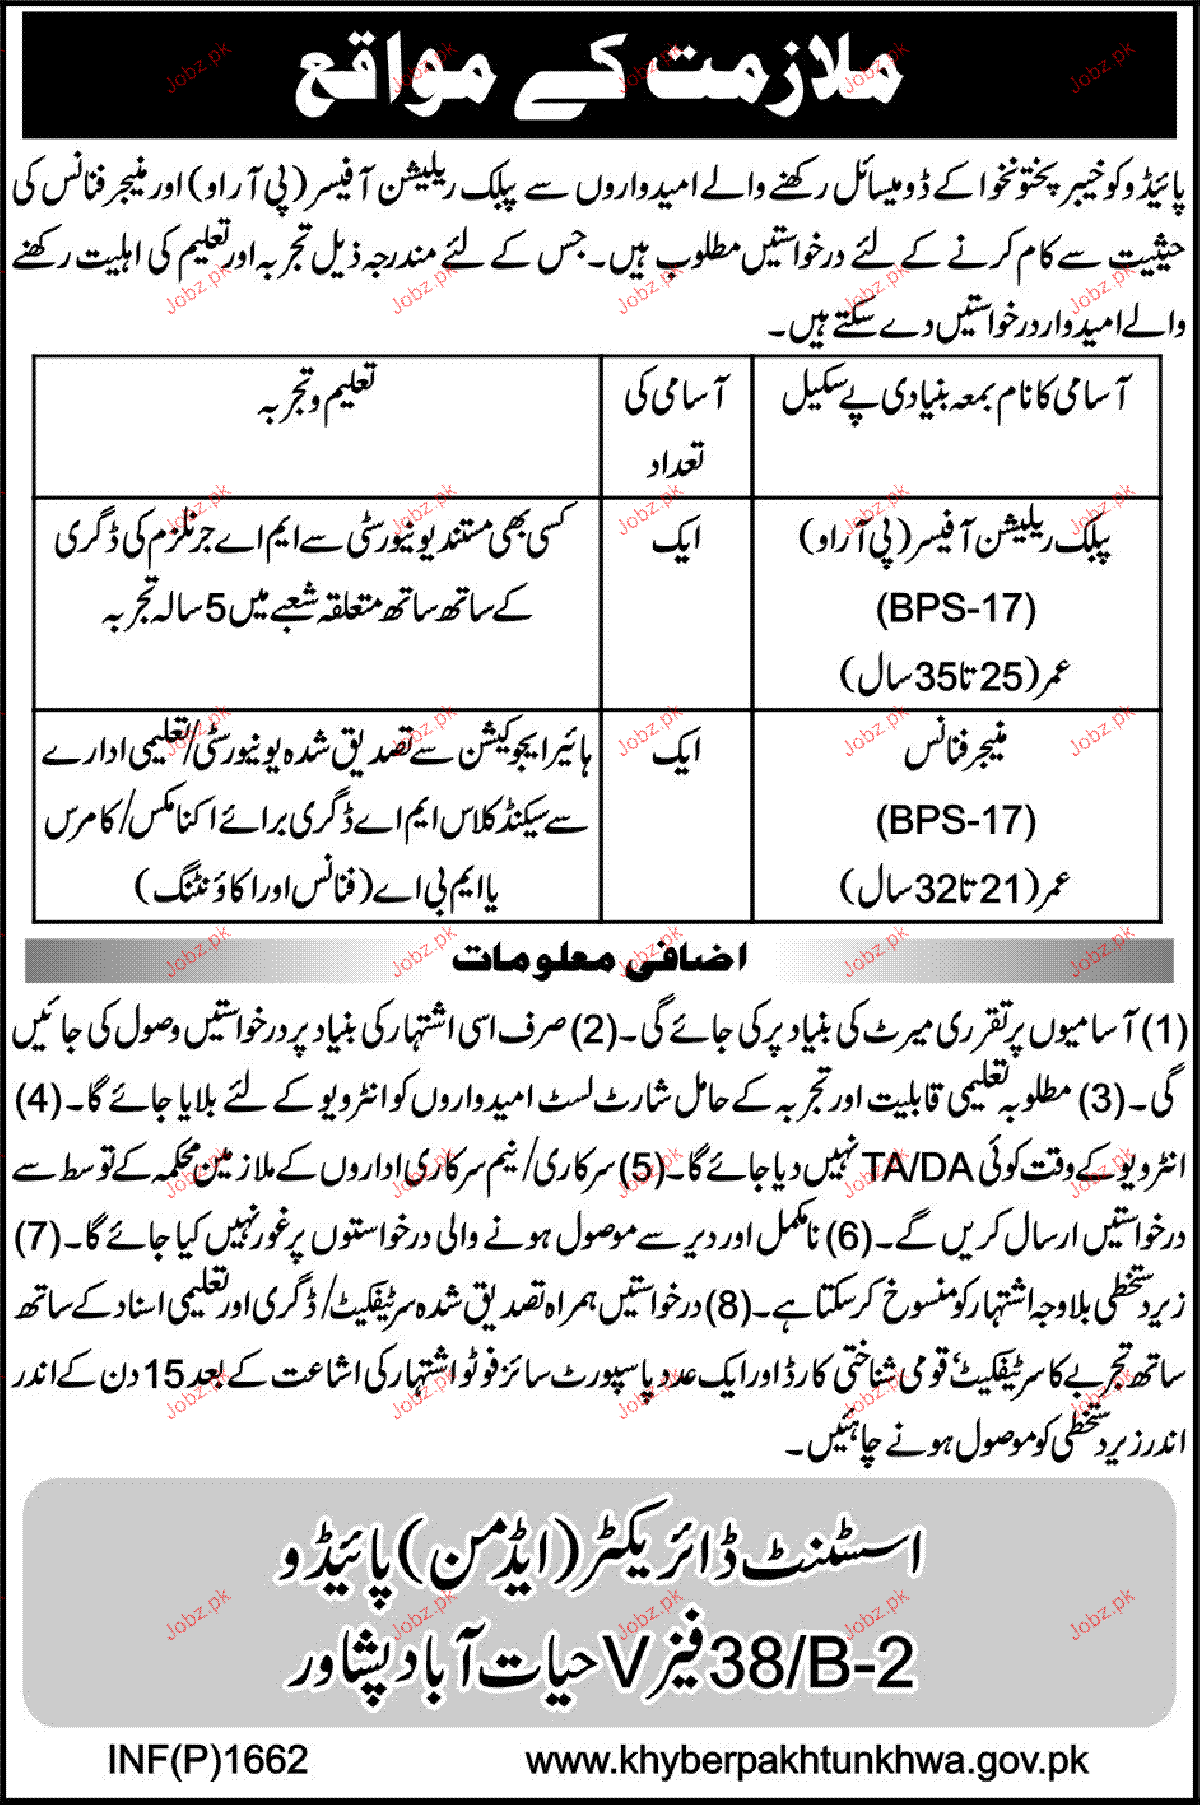 ملازمت کے مواقع
پائیڈو کو خیبر پختونخوا کے ڈومیسائل رکھنے والے امیدواروں سے پبلک ریلیشن آفیسر (پی آر او) اور منیجر فنانس کی
حیثیت سے کام کرنے کے لئے درخواستیں مطلوب ہیں۔ جس کے لئے مندرجہ ذیل تجربہ اور تعلیم کی اہلیت رکھنے
والے امیدوار درخواستیں دے سکتے ہیں۔
آسامی کا نام بمعہ بنیادی پے سکیل
آسامی کی
تعداد
تعلیم و تجربہ
پبلک ریلیشن آفیسر (پی آر او)
(BPS-17)
عمر (25 تا 35 سال)
ایک
کسی بھی مستند یونیورسٹی سے ایم اے جرنلزم کی ڈگری
کے ساتھ ساتھ متعلقہ شعبے میں 5 سالہ تجربہ
منیجر فنانس
(BPS-17)
عمر (21 تا 32 سال)
ایک
ہائیر ایجوکیشن سے تصدیق شدہ یونیورسٹی/تعلیمی ادارے
سے سیکنڈ کلاس ایم اے ڈگری برائے اکنامکس/کامرس
یا ایم بی اے (فنانس اور اکاؤنٹنگ)
اضافی معلومات
(1) آسامیوں پر تقرری میرٹ کی بنیاد پر کی جائے گی۔ (2) صرف اسی اشتہار کی بنیاد پر درخواستیں وصول کی جائیں
گی۔ (3) مطلوبہ تعلیمی قابلیت اور تجربہ کے حامل شارٹ لسٹ امیدواروں کو انٹرویو کے لئے بلایا جائے گا۔ (4)
انٹرویو کے وقت کوئی TA/DA نہیں دیا جائے گا۔ (5) سرکاری/نیم سرکاری اداروں کے ملازمین محکمہ کے توسط سے
درخواستیں ارسال کریں گے۔ (6) نامکمل اور دیر سے موصول ہونے والی درخواستوں پر غور نہیں کیا جائے گا۔ (7)
زیر دستخطی بلاوجہ اشتہار کو منسوخ کر سکتا ہے۔ (8) درخواستیں ہمراہ تصدیق شدہ سرٹیفکیٹ/ڈگری اور تعلیمی اسناد کے ساتھ
ساتھ تجربے کا سرٹیفکیٹ، قومی شناختی کارڈ اور ایک عدد پاسپورٹ سائز فوٹو اشتہار کی اشاعت کے بعد 15 دن کے اندر
اندر زیر دستخطی کو موصول ہونے چاہئیں۔
اسسٹنٹ ڈائریکٹر (ایڈمن) پائیڈو
38/B-2 فیز V حیات آباد پشاور
INF(P)1662
www.khyberpakhtunkhwa.gov.pk
Jobz.pk